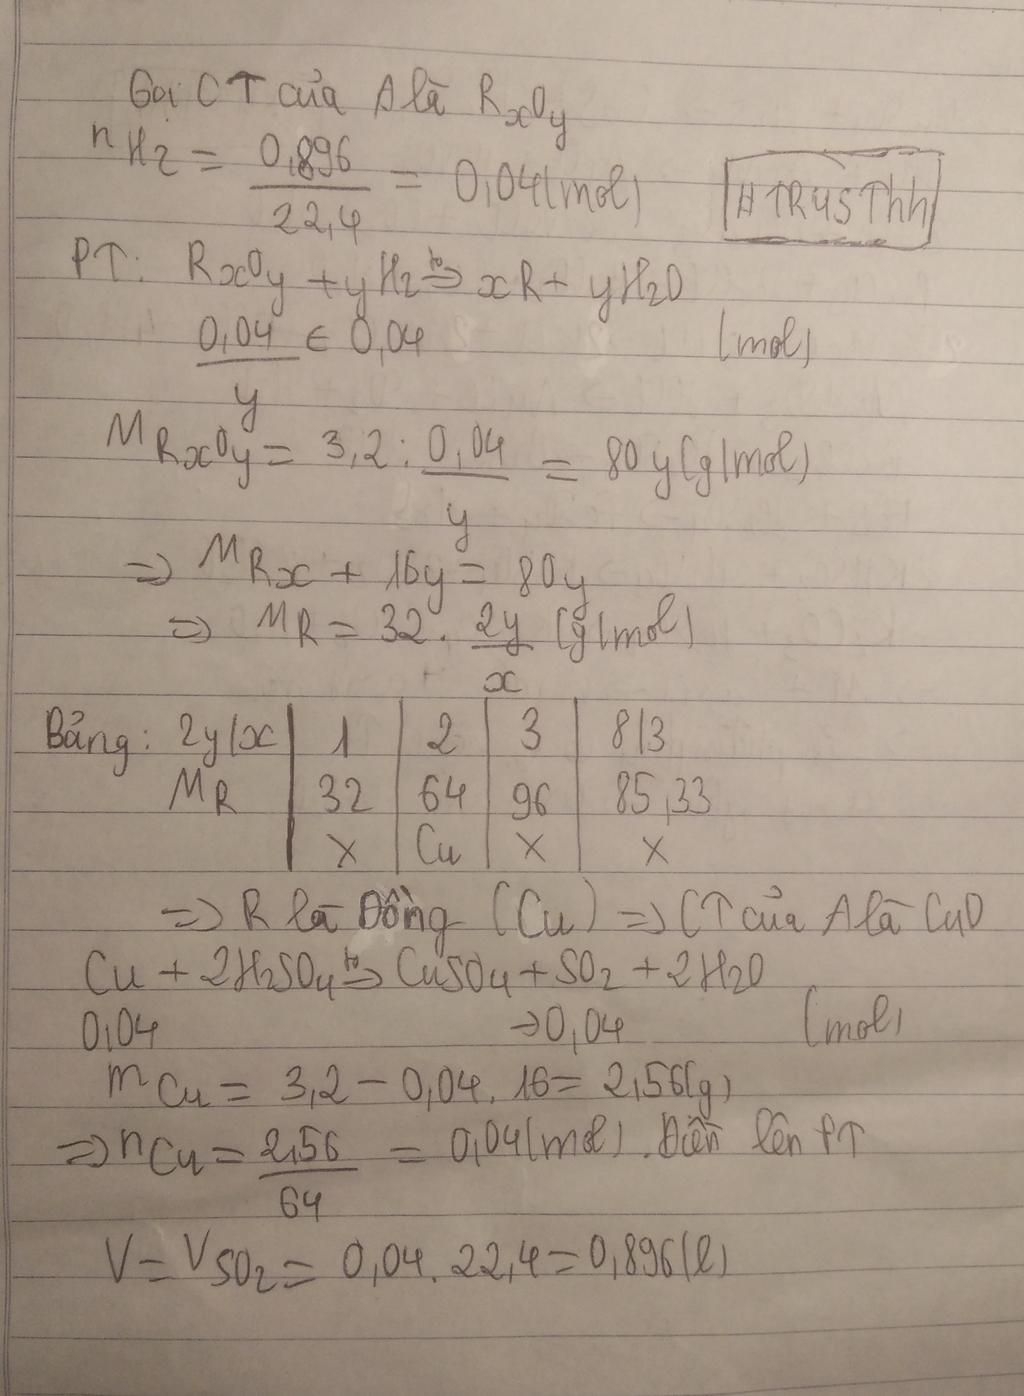 Gọi CT của A là RxOy
nH2 = 0,896 / 22,4 = 0,04(mol)
#TRUSThh
PT: RxOy + yH2 t°=> xR + yH2O
0,04 / y ← 0,04 (mol)
MRxOy = 3,2 : 0,04 / y = 80y (g/mol)
=> MRx + 16y = 80y
=> MR = 32 . 2y / x (g/mol)
Bảng: 2y/x | 1 | 2 | 3 | 8/3
MR | 32 | 64 | 96 | 85,33
| X | Cu | X | X
=> R là Đồng (Cu) => CT của A là CuO
Cu + 2H2SO4 t°=> CuSO4 + SO2 + 2H2O
0,04 → 0,04 (mol)
mCu = 3,2 - 0,04. 16 = 2,56(g)
=> nCu = 2,56 / 64 = 0,04(mol). Điền lên PT
V = VSO2 = 0,04. 22,4 = 0,896(l)